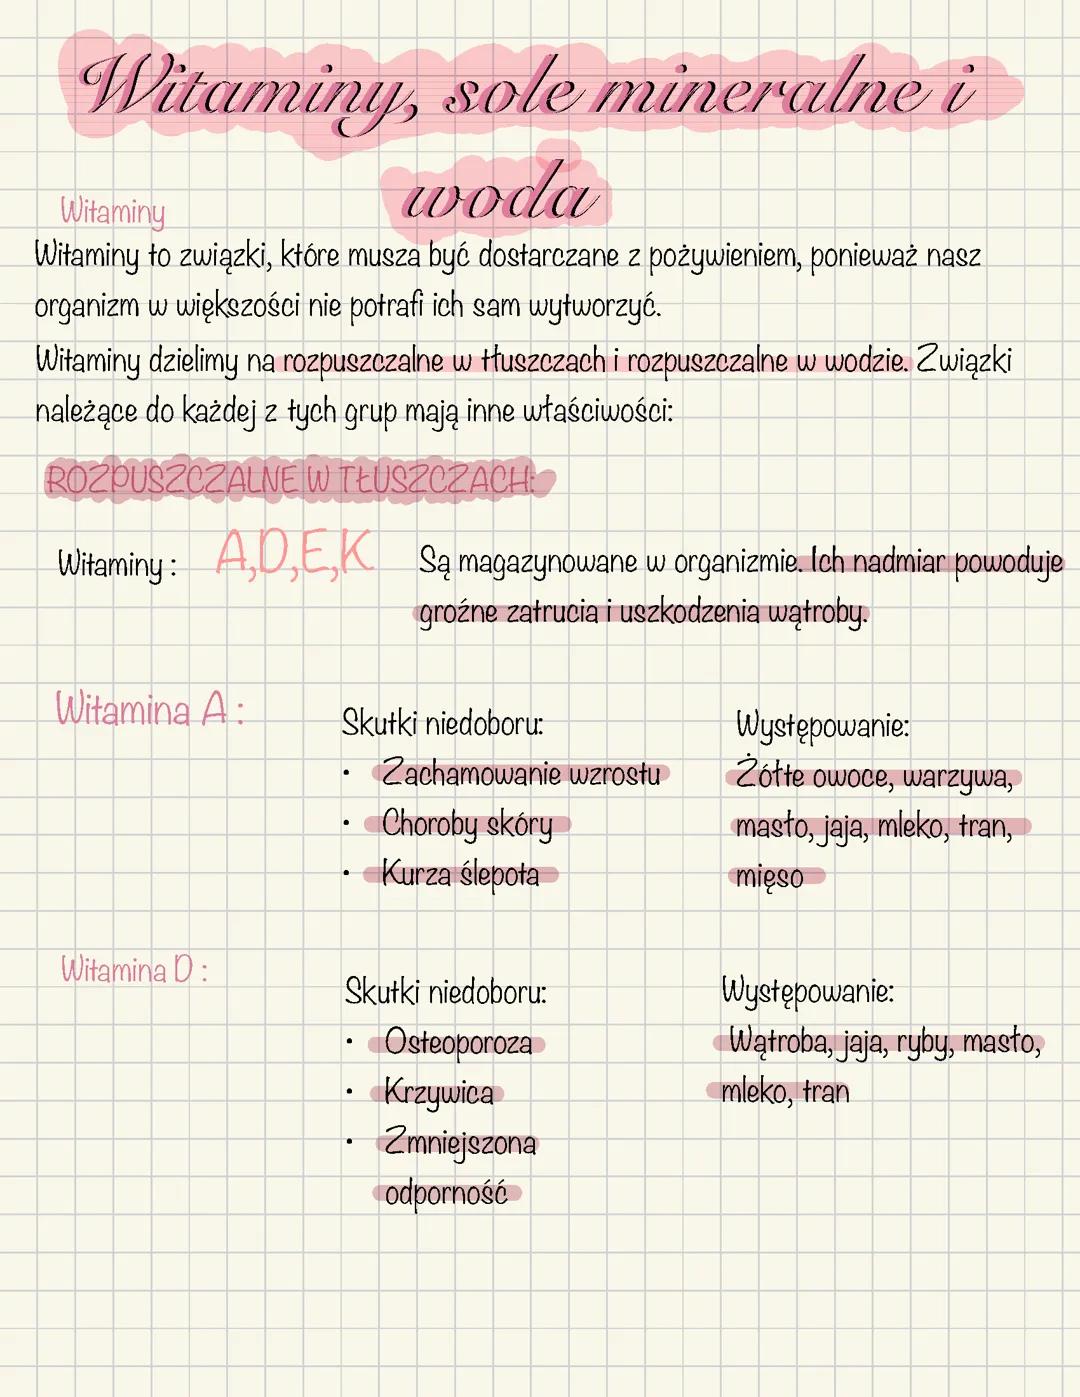 Witaminy, sole mineralne i
woda
Witaminy
Witaminy to związki, które musza być dostarczane z pożywieniem, ponieważ nasz
organizm w większości nie potrafi ich sam wytworzyć.
Witaminy dzielimy na rozpuszczalne w tłuszczach i rozpuszczalne w wodzie. Związki
należące do każdej z tych grup mają inne właściwości:
ROZPUSZCZALNE W TŁUSZCZACH:
Witaminy : A,D,E,K Są magazynowane w organizmie. Ich nadmiar powoduje
groźne zatrucia i uszkodzenia wątroby.
Witamina A :
Skutki niedoboru:
• Zachamowanie wzrostu
• Choroby skóry
• Kurza ślepota
Występowanie:
Żółte owoce, warzywa,
masło, jaja, mleko, tran,
mięso
Witamina D :
Skutki niedoboru:
• Osteoporoza
• Krzywica
• Zmniejszona
odporność
Występowanie:
Wątroba, jaja, ryby, masło,
mleko, tran